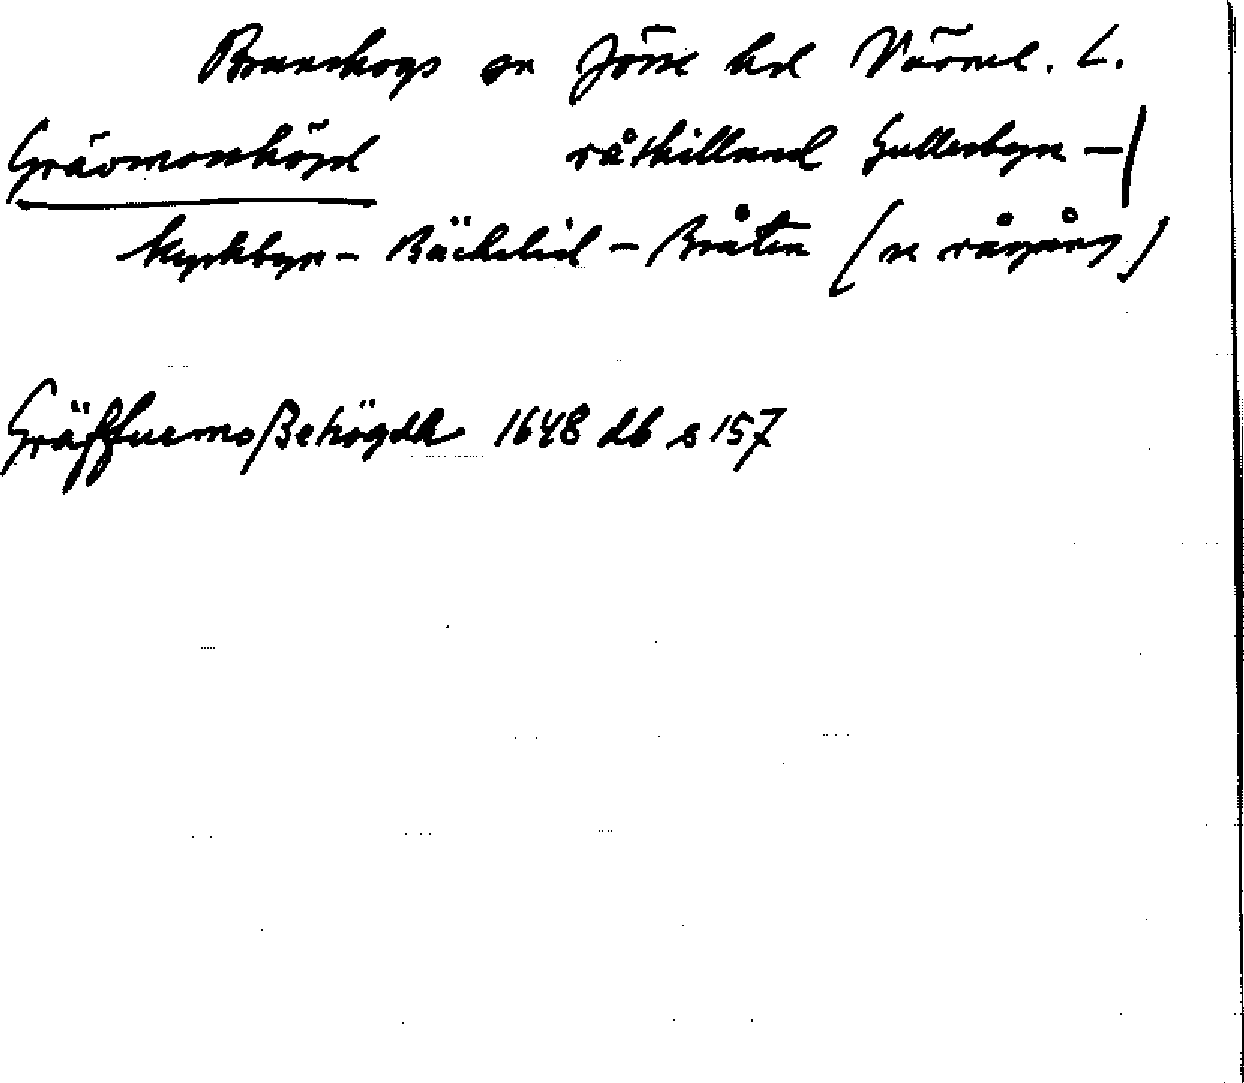 Brunskogs sn Jösse hd Värml. L.
Grävmonhögd råskillnad Gullerbyn —
Kyrkbyn - Bäckelid - Bråten (se rågång)
Gräffuemoßehögdh 1648 db s 157